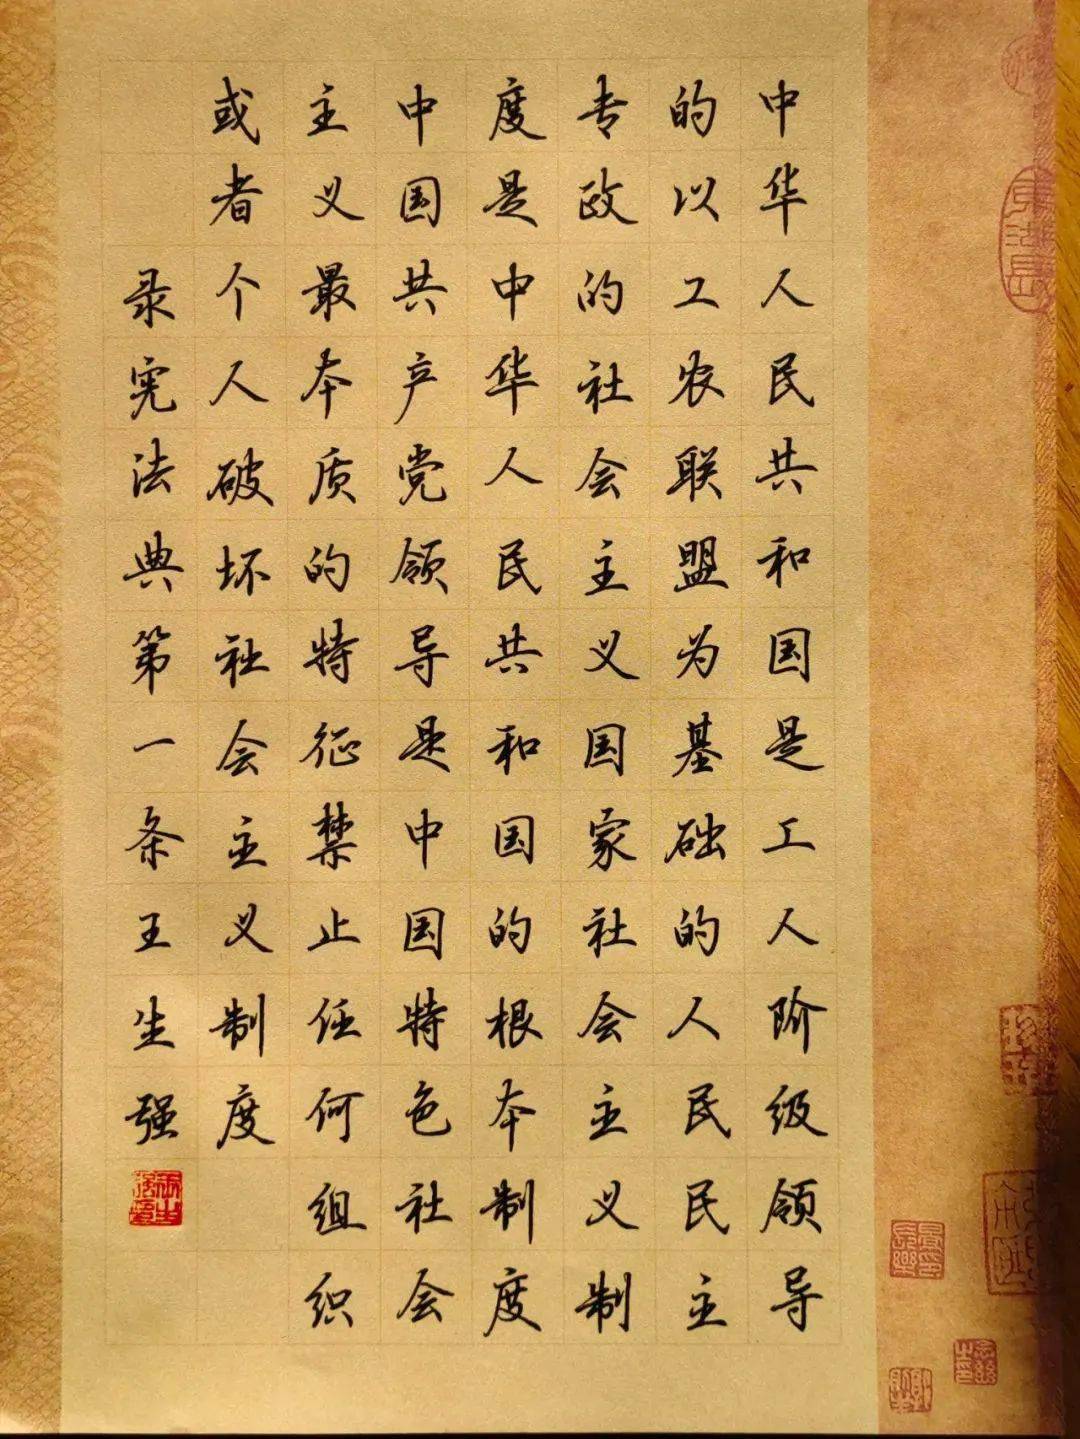 中华人民共和国是工人阶级领导
的以工农联盟为基础的人民民主
专政的社会主义国家社会主义制
度是中华人民共和国的根本制度
中国共产党领导是中国特色社会
主义最本质的特征禁止任何组织
或者个人破坏社会主义制度
录宪法典第一条王生强